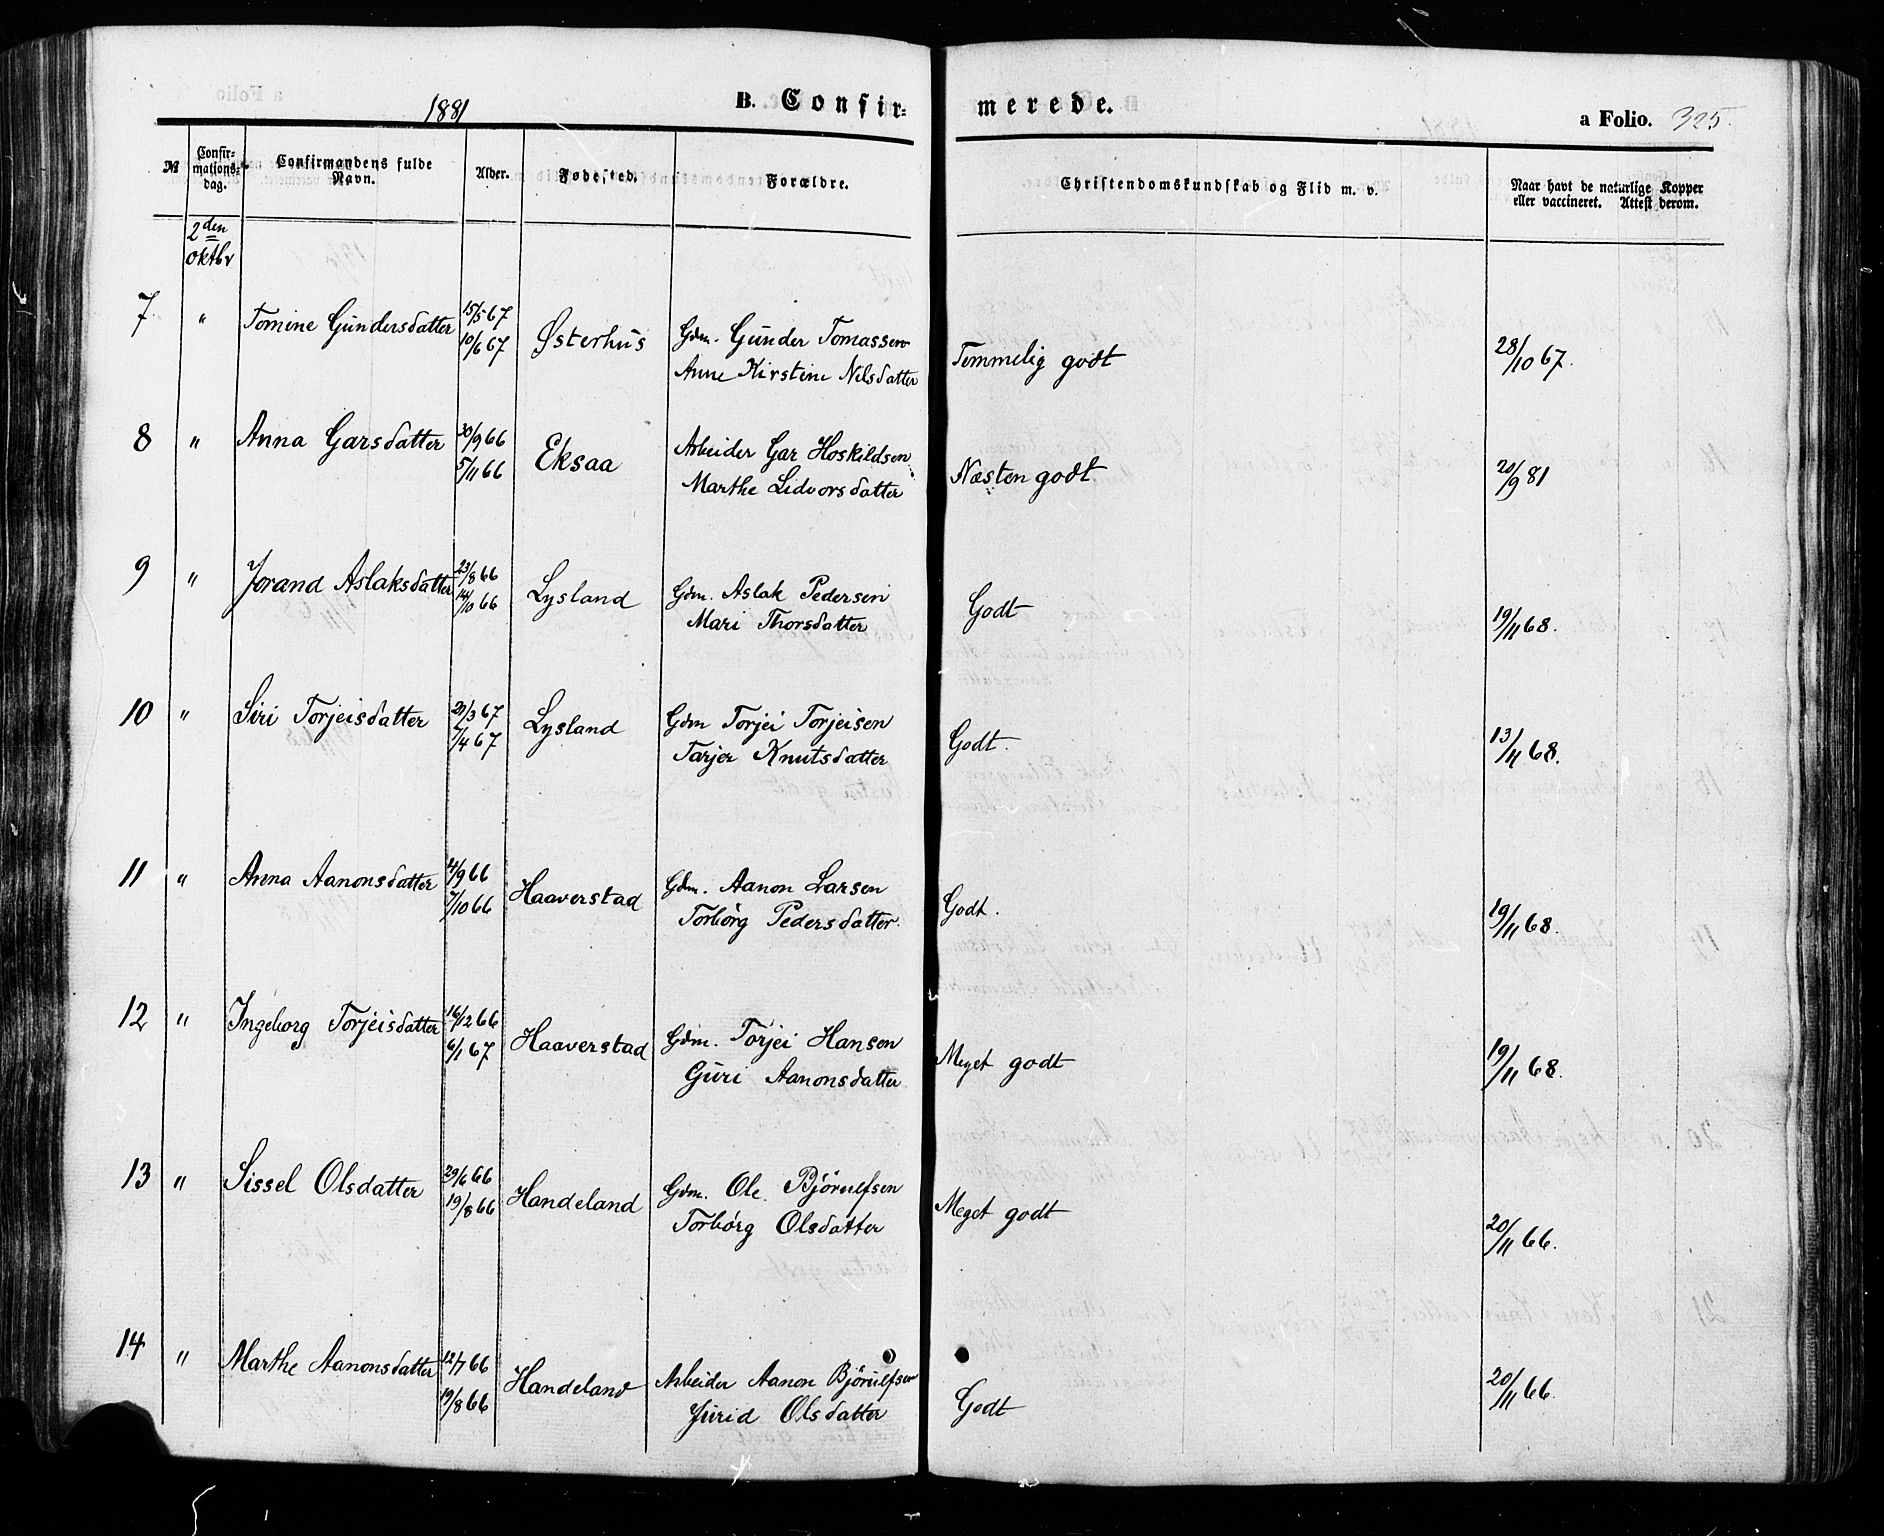 1881
B. Confir-
merede.
a Folio. 325.
№
Confir-
mations-
dag.
Confirmandens fulde
Navn.
Alder.
Fødested.
Forældre.
Christendomskundskab og Flid m. v.
Naar havt de naturlige Kopper
eller vaccineret. Attest derom.
2den
oktbr
7 " Tomine Gundersdatter 15/5 67
10/6 67
Østerhus
Gdm. Gunder Tomassen
Anne Kirstine Nilsdatter
Temmelig godt
28/10 67.
8 " Anna Garsdatter 30/9 66
5/11 66
Eksaa
Arbeider Gar Hoskildsen
Marthe Lidvorsdatter
Næsten godt
20/9 81
9 " Jorand Aslaksdatter 23/8 66
14/10 66
Lysland
Gdm. Aslak Pedersen
Mari Thorsdatter
Godt
19/11 68.
10 " Siri Torjeisdatter /3 67
7/4 67
Lysland
Gdm Torjei Torjeisen
Tarjer Knutsdatter
Godt.
13/11 68.
11 " Anna Aanonsdatter 4/9 66
7/10 66
Haaverstad
Gdm. Aanon Larsen
Torborg Pedersdatter.
Godt.
19/11 68.
12 " Ingeborg Torjeisdatter 16/12 66
6/1 67
Haaverstad
Gdm. Torjei Hansen
Guri Aanonsdatter
Meget godt
19/11 68.
13 " Sissel Olsdatter 29/6 66
19/8 66
Handeland
Gdm. Ole Bjørulfsen
Torborg Olsdatter
Meget godt
20/11 66.
14 " Marthe Aanonsdatter 12/7 66
19/8 66
Handeland
Arbeider Aanon Bjørulfsen
Jurid Olsdatter
Godt
20/11 66.